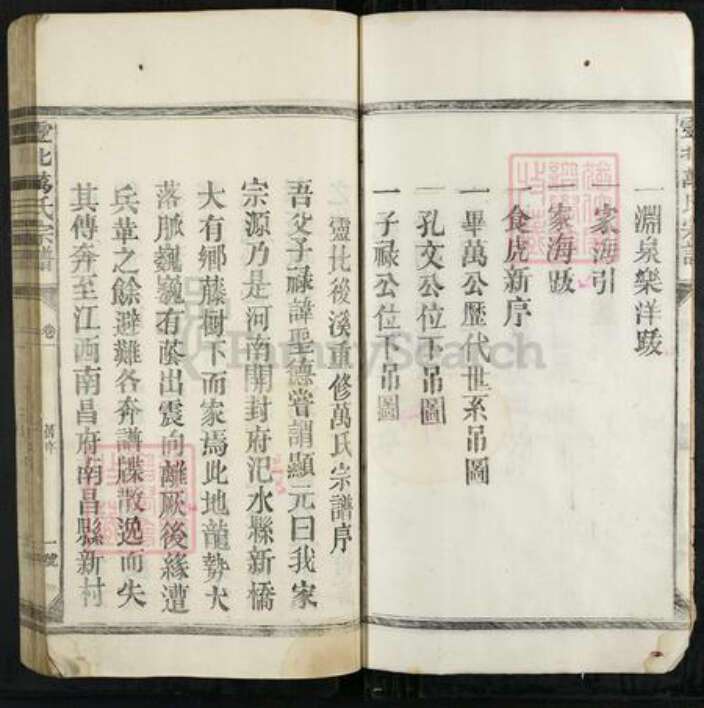 一淵泉樂洋跋
一家海引
一家海跋
一食虎新序
一畢萬公歷代世系吊圖
一孔文公位下吊圖
一子祿公位下吊圖
靈北後溪重修萬氏宗譜序
吾父子祿諱聖德嘗謂顯元曰我家
宗源乃是河南開封府汜水縣新橋
大有鄉藤樹下而家焉此地龍勢大
落脈巍巍有蔭出震向離厥後緣遭
兵革之餘避難各奔譜牒散逸而失
其傳奔至江西南昌府南昌縣新村
靈北萬氏宗譜
卷一
舊序
一號
靈北萬氏宗譜
FamilySearch